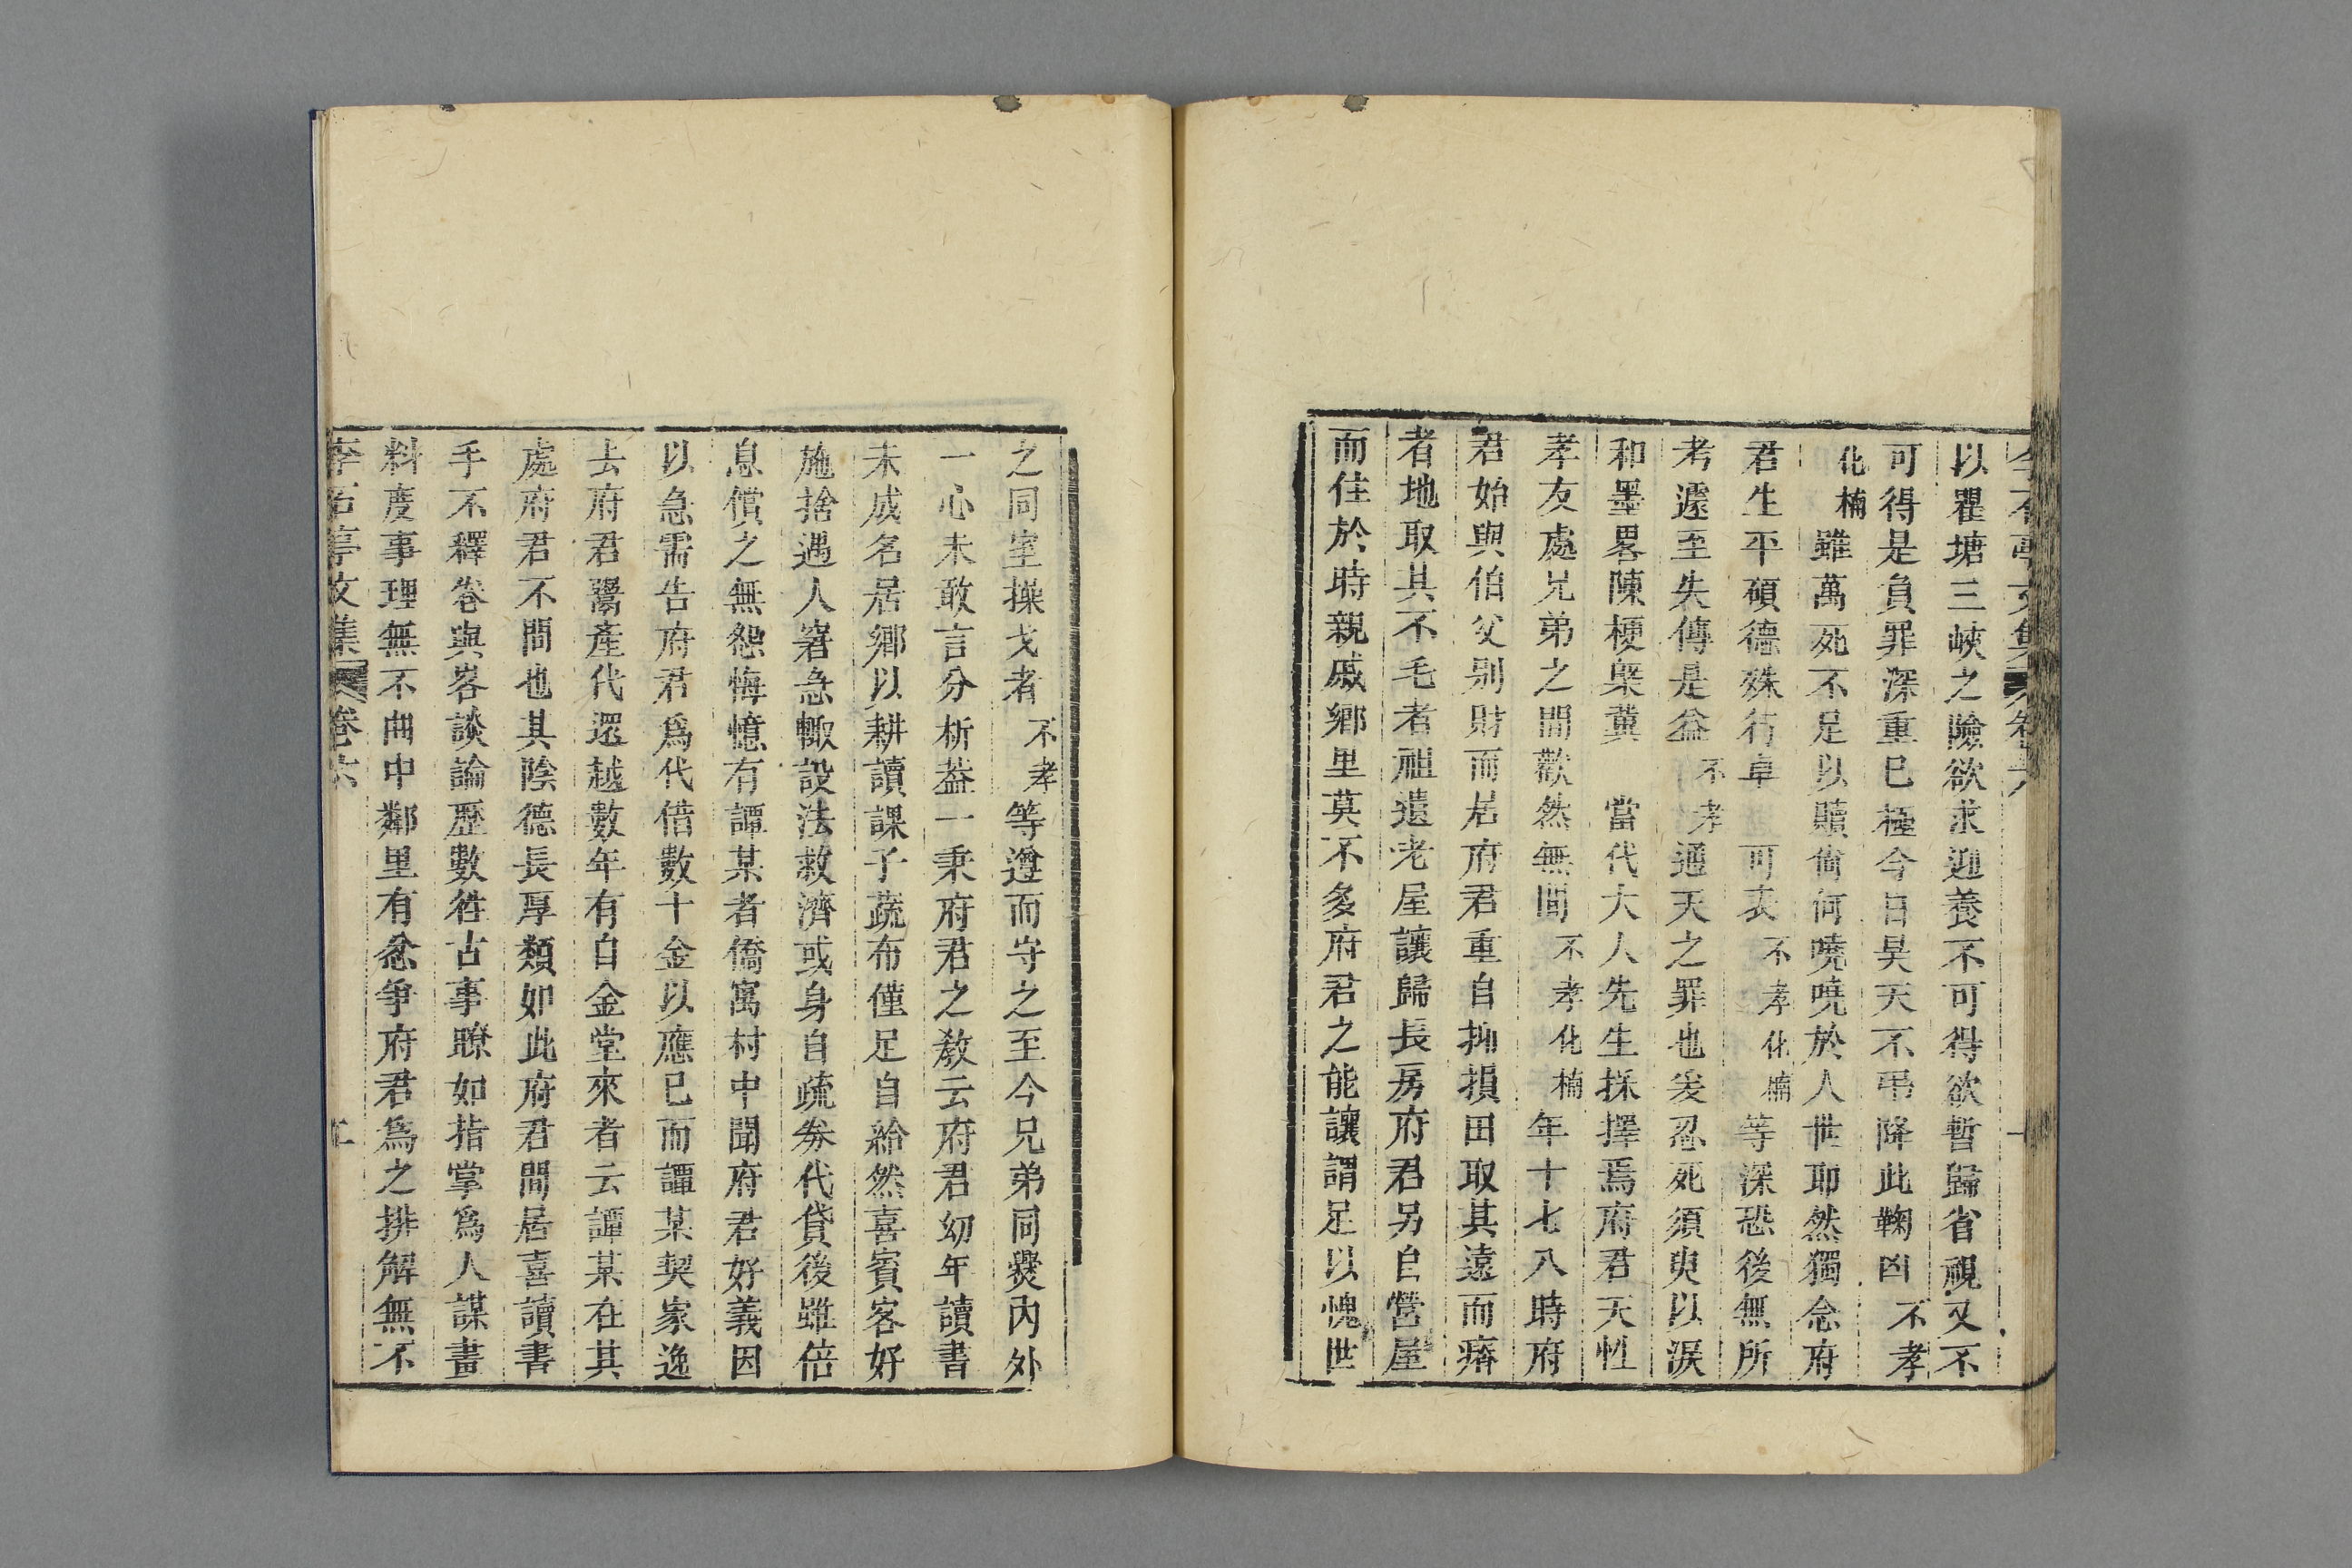 以瞿塘三峽之險欲求迎養不可得欲暫歸省視又不
可得是負罪深重已極今日昊天不弔降此鞠凶不孝
化楠雖萬死不足以贖尙何嘵嘵於人世耶然獨念府
君生平碩德殊行卓可表不孝化楠等深恐後無所
考遽至失傳是益不孝通天之罪也爰忍死須臾以淚
和墨畧陳梗槩冀當代大人先生採擇焉府君天性
孝友處兄弟之間歡然無間不孝化楠年十七八時府
君始與伯父别財而居府君重自抑損田取其遠而瘠
者地取其不毛者祖遺老屋讓歸長房府君另自營屋
而住於時親戚鄉里莫不多府君之能讓謂足以愧世
之同室操戈者不孝等遵而守之至今兄弟同爨內外
一心未敢言分析葢一秉府君之教云府君幼年讀書
未成名居鄉以耕讀課子蔬布僅足自給然喜賓客好
施捨遇人窘急輙設法救濟或身自疏劵代貸後雖倍
息償之無怨悔憶有譚某者僑寓村中聞府君好義因
以急需告府君爲代借數十金以應已而譚某契家逸
去府君鬻產代還越數年有自金堂來者云譚某在其
處府君不問也其陰德長厚類如此府君間居喜讀書
手不釋卷與客談論歷數徃古事瞭如指掌爲人謀畫
料度事理無不曲中鄰里有忿爭府君爲之排解無不
李石亭文集 卷六